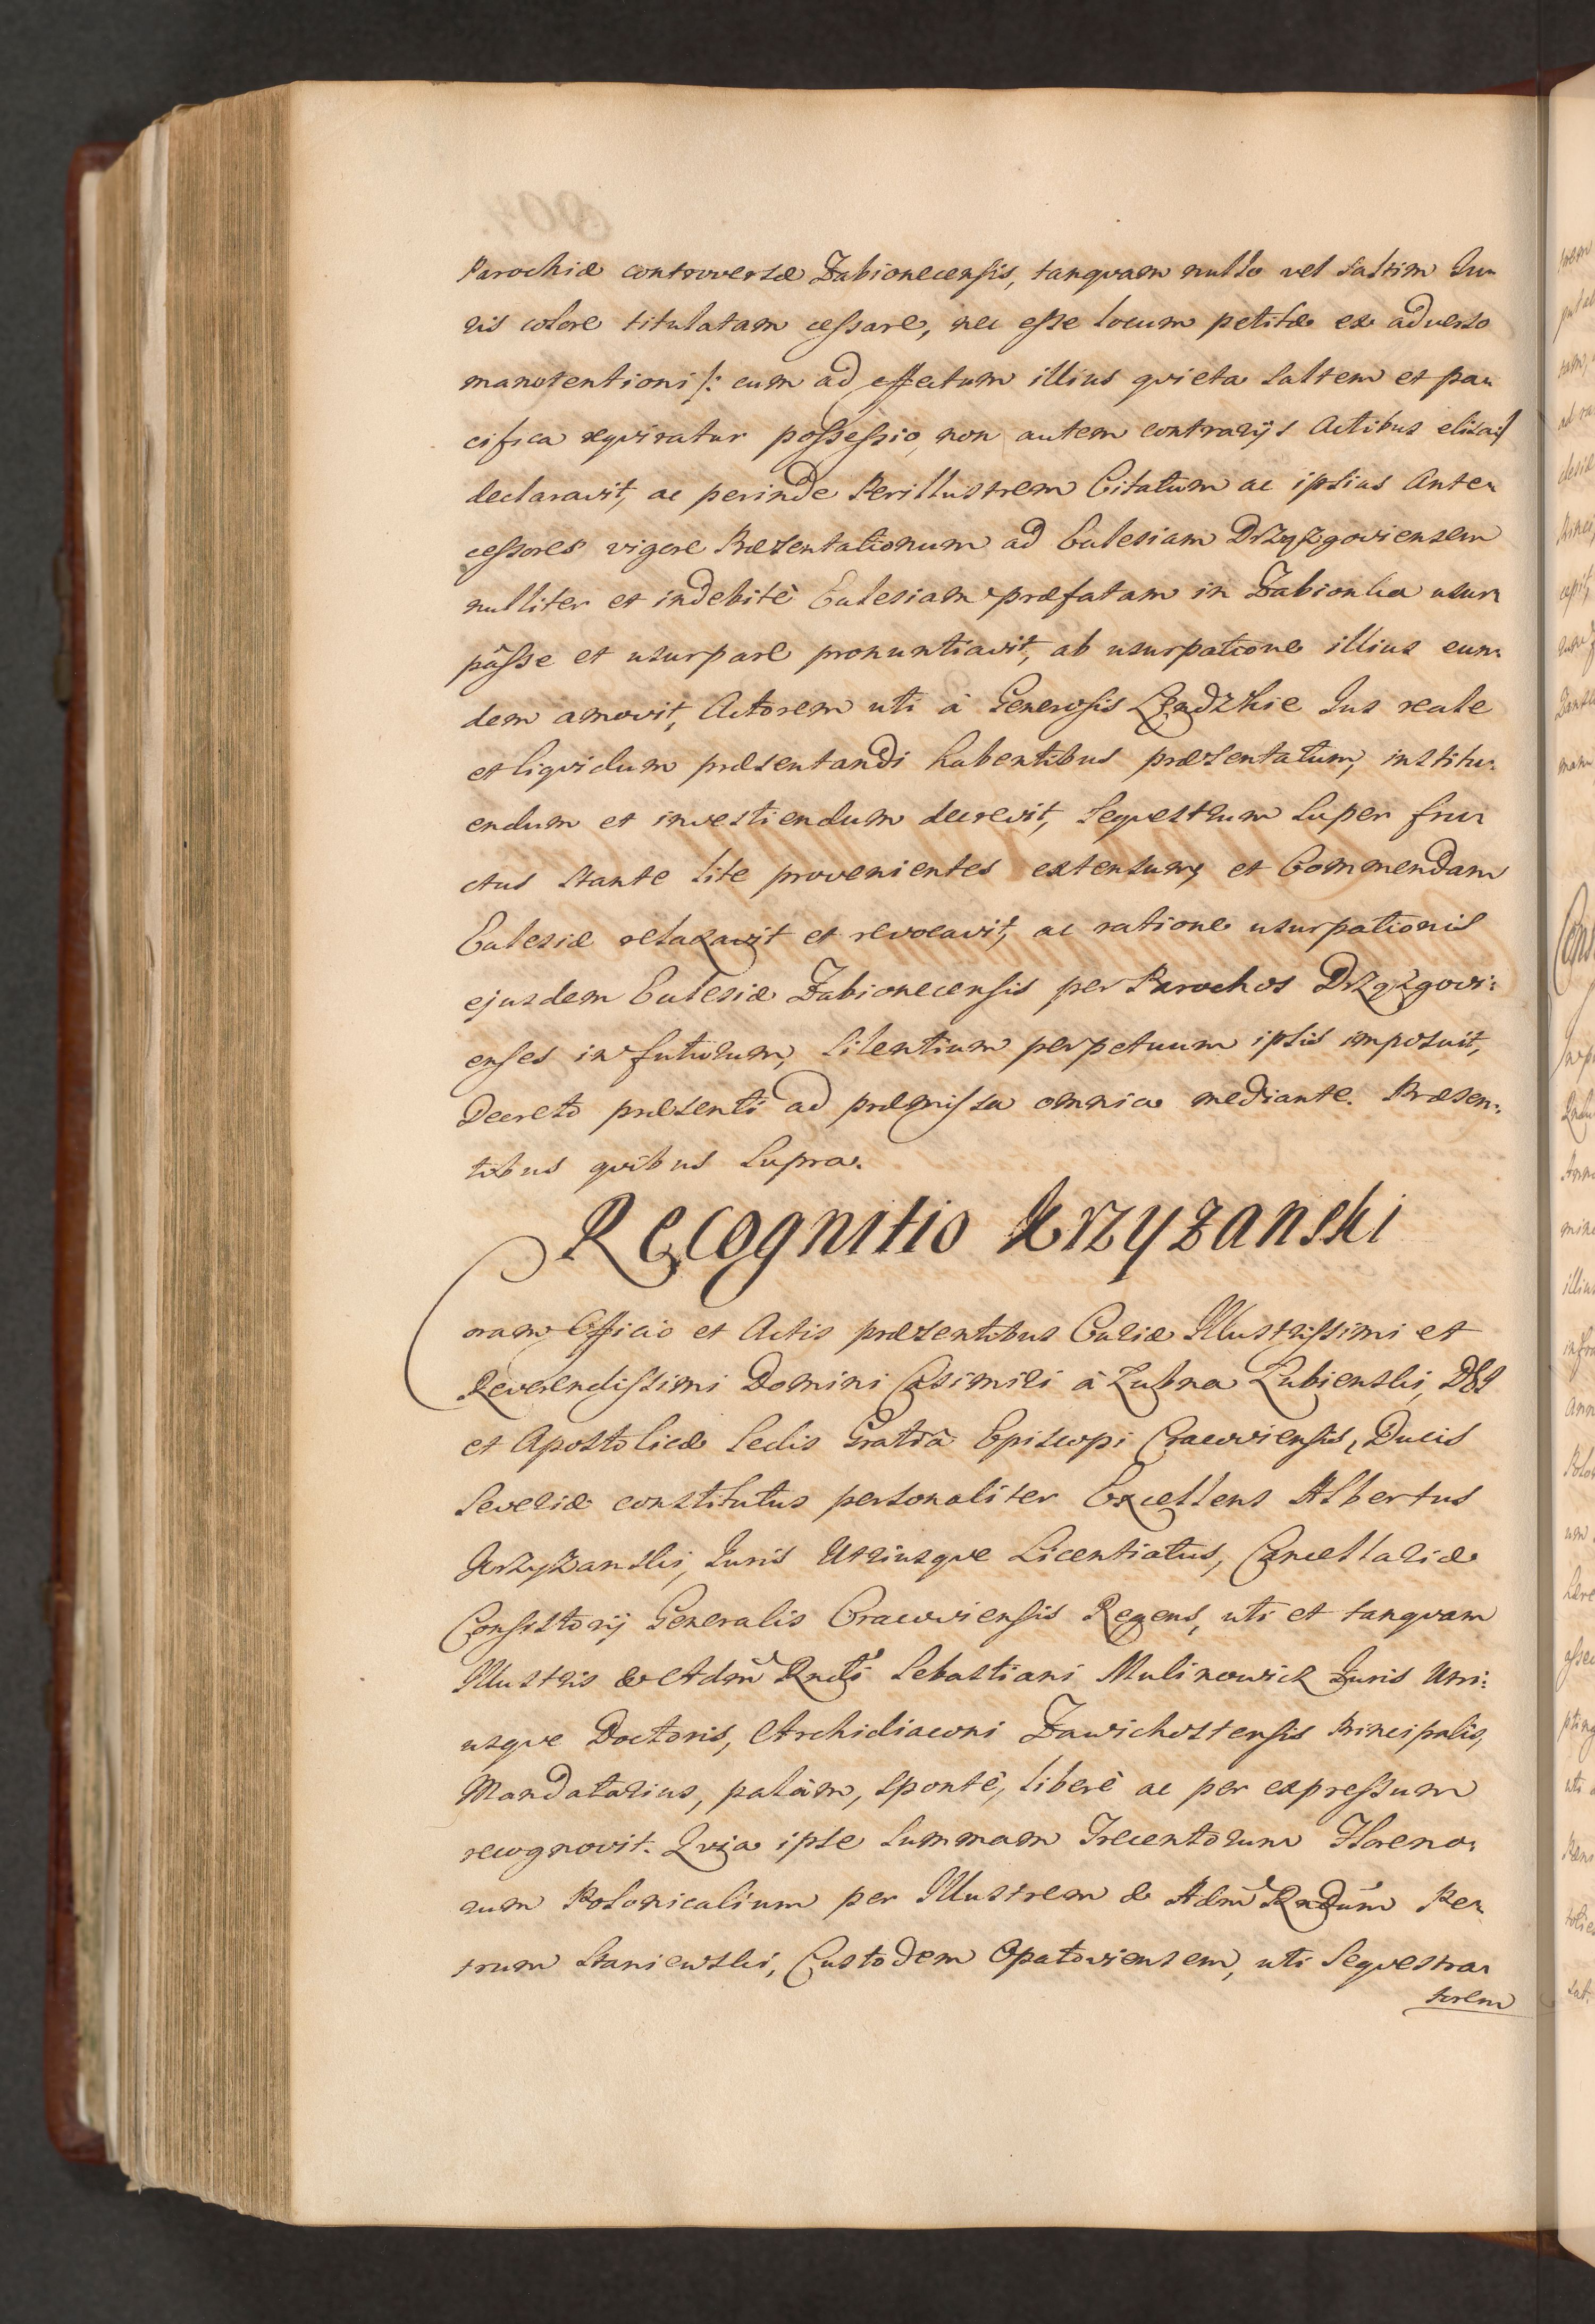 Parochiæ controversæ Żabionecensis, tanquam nullo vel saltim Ju-
ris colore titulatam cessare, nec esse locum petitæ ex adverso
manutentioni /: cum ad effectum illius quieta saltem et pa-
cifica requiratur possessio, non autem contrarijs Actibus elisa :/
declaravit, ac perinde Perillustrem Citatum ac ipsius Ante-
cessores vigore Præsentationum ad Ecclesiam Drzyzgoviensem
nulliter et indebitè Ecclesiam præfatam in Żabionka usur-
pâsse et usurpare pronuntiavit, ab usurpatione illius eun-
dem amovit, Actorem uti à Generosis Lędzkie Jus reale
et liqvidum præsentandi habentibus præsentatum, institu-
endum et investiendum decrevit, Seqvestrum super fru-
ctus stante lite provenientes extensum, et Commendam
Ecclesiæ relaxavit et revocavit, ac ratione usurpationis
ejusdem Ecclesiæ Żabionecensis per Parochos Drzyzgovi-
enses in futurum, silentium perpetuum ipsis imposuit,
Decreto præsenti ad præmissa omnia mediante. Præsen-
tibus qvibus supra.
Recognitio Krzyzanski
Coram Officio et Actis præsentibus Curiæ Illustrissimi et
Reverendissimi Domini Casimiri à Łubna Łubienski, DEI
et Apostolicæ Sedis Gratiâ Episcopi Cracoviensis, Ducis
Severiæ constitutus personaliter Excellens Albertus
Krzyzanski, Juris Utriusqve Licentiatus, Cancellariæ
Consistorij Generalis Cracoviensis Regens, uti et tanqvam
Illustris & Adm Rndi Sebastiani Mulinowicz Juris Utri-
usqve Doctoris, Archidiaconi Zawichostensis Principalis,
Mandatarius, palàm, spontè, liberè ac per expressum
recognovit. Qvia ipse summam Trecentorum Floreno-
rum Polonicalium per Illustrem & Adm Rndum Pe-
trum Staniewski, Custodem Opatoviensem, uti Seqvestra-
torem